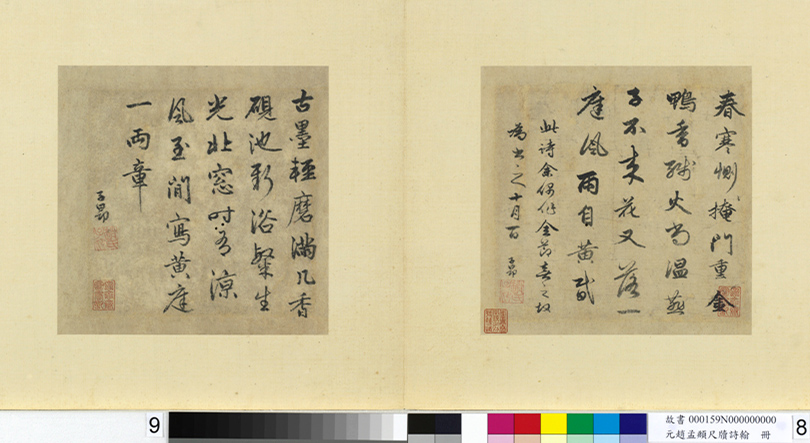 春寒惻〻掩門重金
鴨香殘火尚温燕
子不來花又落一
庭風雨自黃昏
此詩余偶作金節喜之故
為書之十月
子昂
古墨輕磨滿几香
硯池新浴粲生
光北窗時有涼
風至閒寫黃庭
一兩章
子昂
9
故書 000159N000000000
元趙孟頫尺牘詩翰 冊
8